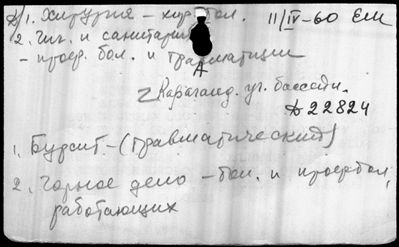 1. Хирургия – хир. бол. 11/IV-60 ЕМ
2. Гиг. и санитария
– проф. бол. и травматизм
А
Караганд. уг. бассейн.
Д 22824
1. Бурсит – (травматический)
2. Горное дело – бол. и проф. бол.
работающих